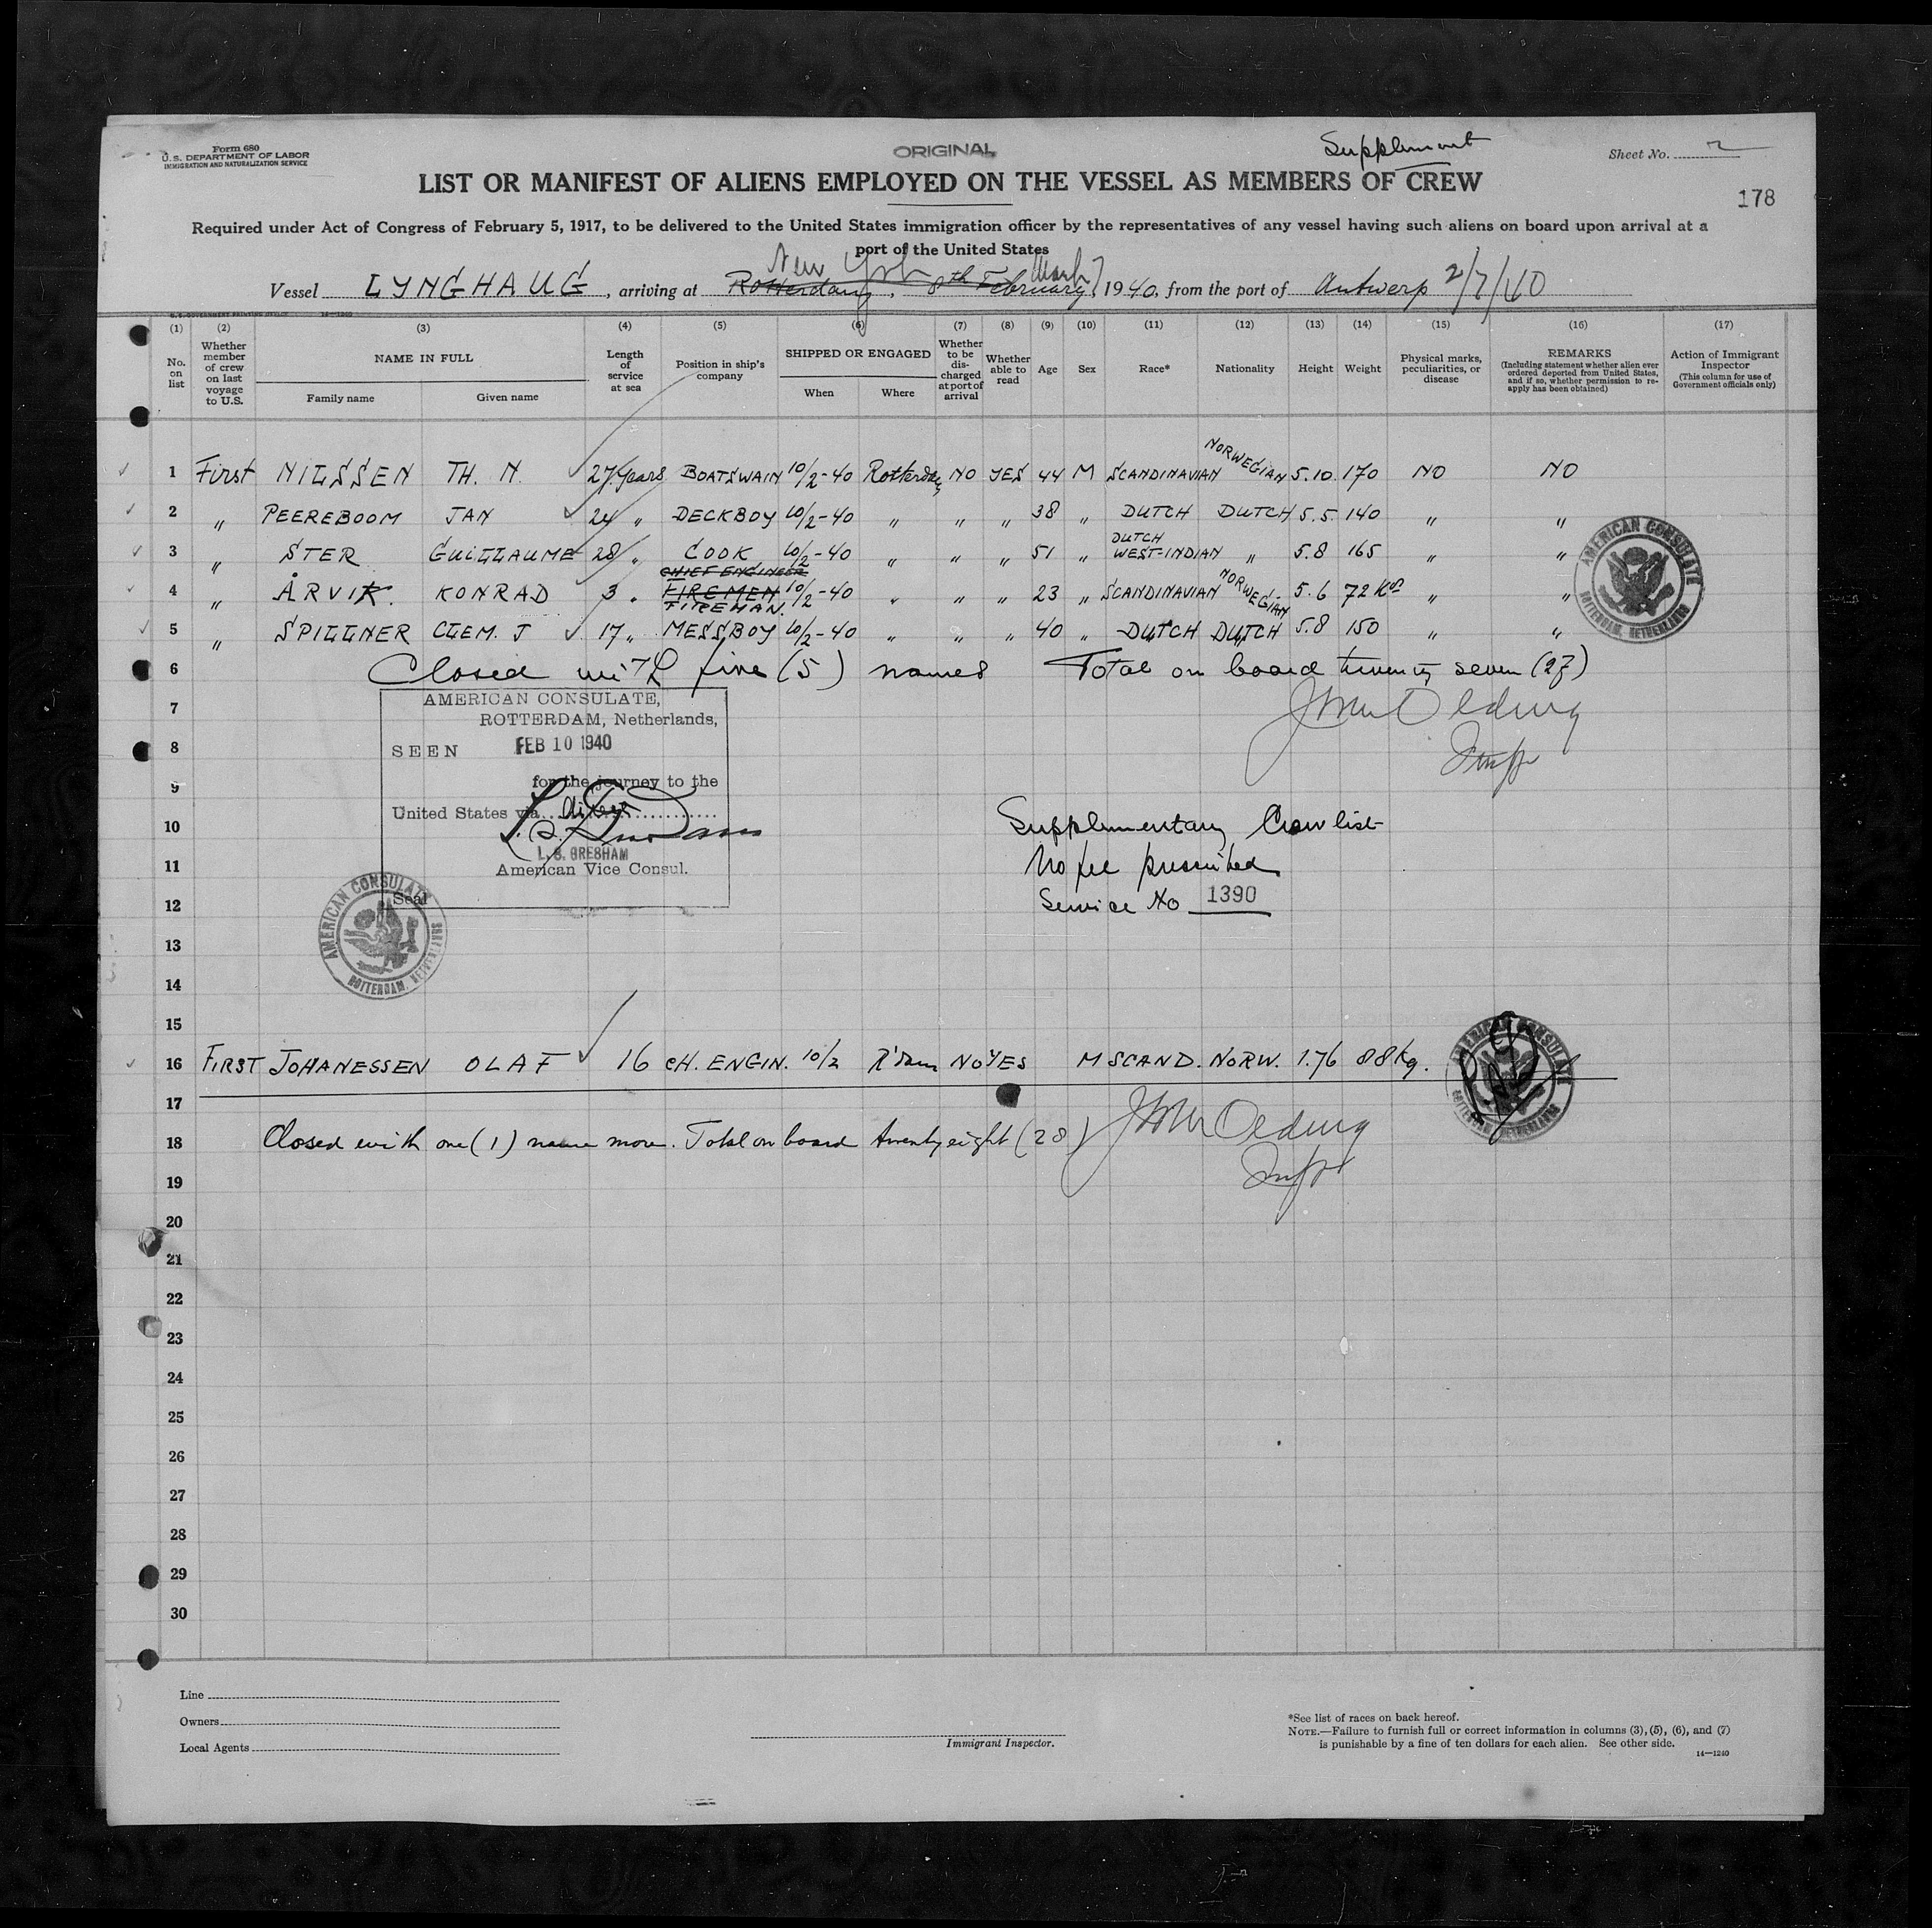 Form 680
U.S. DEPARTMENT OF LABOR
IMMIGRATION AND NATURALIZATION SERVICE
ORIGINAL
Supplement
Sheet No. 2
LIST OR MANIFEST OF ALIENS EMPLOYED ON THE VESSEL AS MEMBERS OF CREW
178
Required under Act of Congress of February 5, 1917, to be delivered to the United States immigration officer by the representatives of any vessel having such aliens on board upon arrival at a
port of the United States
New York March 7
Vessel LYNGHAUG, arriving at Rotterdam, 8th February, 1940, from the port of Antwerp 2/7/40
U.S. GOVERNMENT PRINTING OFFICE 14—1240
(1) (2) (3) (4) (5) (6) (7) (8) (9) (10) (11) (12) (13) (14) (15) (16) (17)
No. on list
Whether member of crew on last voyage to U.S.
NAME IN FULL
Family name
Given name
Length of service at sea
Position in ship's company
SHIPPED OR ENGAGED
When
Where
Whether to be discharged at port of arrival
Whether able to read
Age
Sex
Race*
Nationality
Height
Weight
Physical marks, peculiarities, or disease
REMARKS
(Including statement whether alien ever ordered deported from United States, and if so, whether permission to re-apply has been obtained)
Action of Immigrant Inspector
(This column for use of Government officials only)
1 First NILSSEN TH. N. 27 years BOATSWAIN 10/2-40 Rotterdam NO YES 44 M SCANDINAVIAN NORWEGIAN 5.10. 170 NO NO
2 " PEEREBOOM JAN 24 " DECKBOY 10/2-40 " " " 38 " DUTCH DUTCH 5.5. 140 " "
3 " STER GUILLAUME 28 " COOK 10/2-40 " " " 51 " DUTCH WEST-INDIAN " 5.8 165 " "
CHIEF ENGINEER
4 " ÅRVIK. KONRAD 3 " FIREMEN 10/2-40 " " " 23 " SCANDINAVIAN NORWEGIAN 5.6 72 Kos " "
FIREMAN.
5 " SPILLNER CLEM. J 17 " MESSBOY 10/2-40 " " " 40 " DUTCH DUTCH 5.8 150 " "
6 Closed with five (5) names Total on board twenty seven (27)
7
8
9
10 Supplementary Crew list
11 No fee prescribed
12 Service No 1390
AMERICAN CONSULATE,
ROTTERDAM, Netherlands,
SEEN FEB 10 1940
for the journey to the
United States via
L. S. GRESHAM
American Vice Consul.
Seal
AMERICAN CONSULATE
ROTTERDAM, NETHERLANDS
AMERICAN CONSULATE
ROTTERDAM, NETHERLANDS
13
14
15
16 FIRST JOHANESSEN OLAF 16 CH. ENGIN. 10/2 R'dam NO YES M SCAND. NORW. 1.76 88 kg.
AMERICAN CONSULATE
ROTTERDAM, NETHERLANDS
17
18 Closed with one (1) name more. Total on board twenty eight (28)
19
20
21
22
23
24
25
26
27
28
29
30
Line
Owners
Local Agents
Immigrant Inspector.
*See list of races on back hereof.
NOTE.—Failure to furnish full or correct information in columns (3), (5), (6), and (7)
is punishable by a fine of ten dollars for each alien. See other side.
14—1240